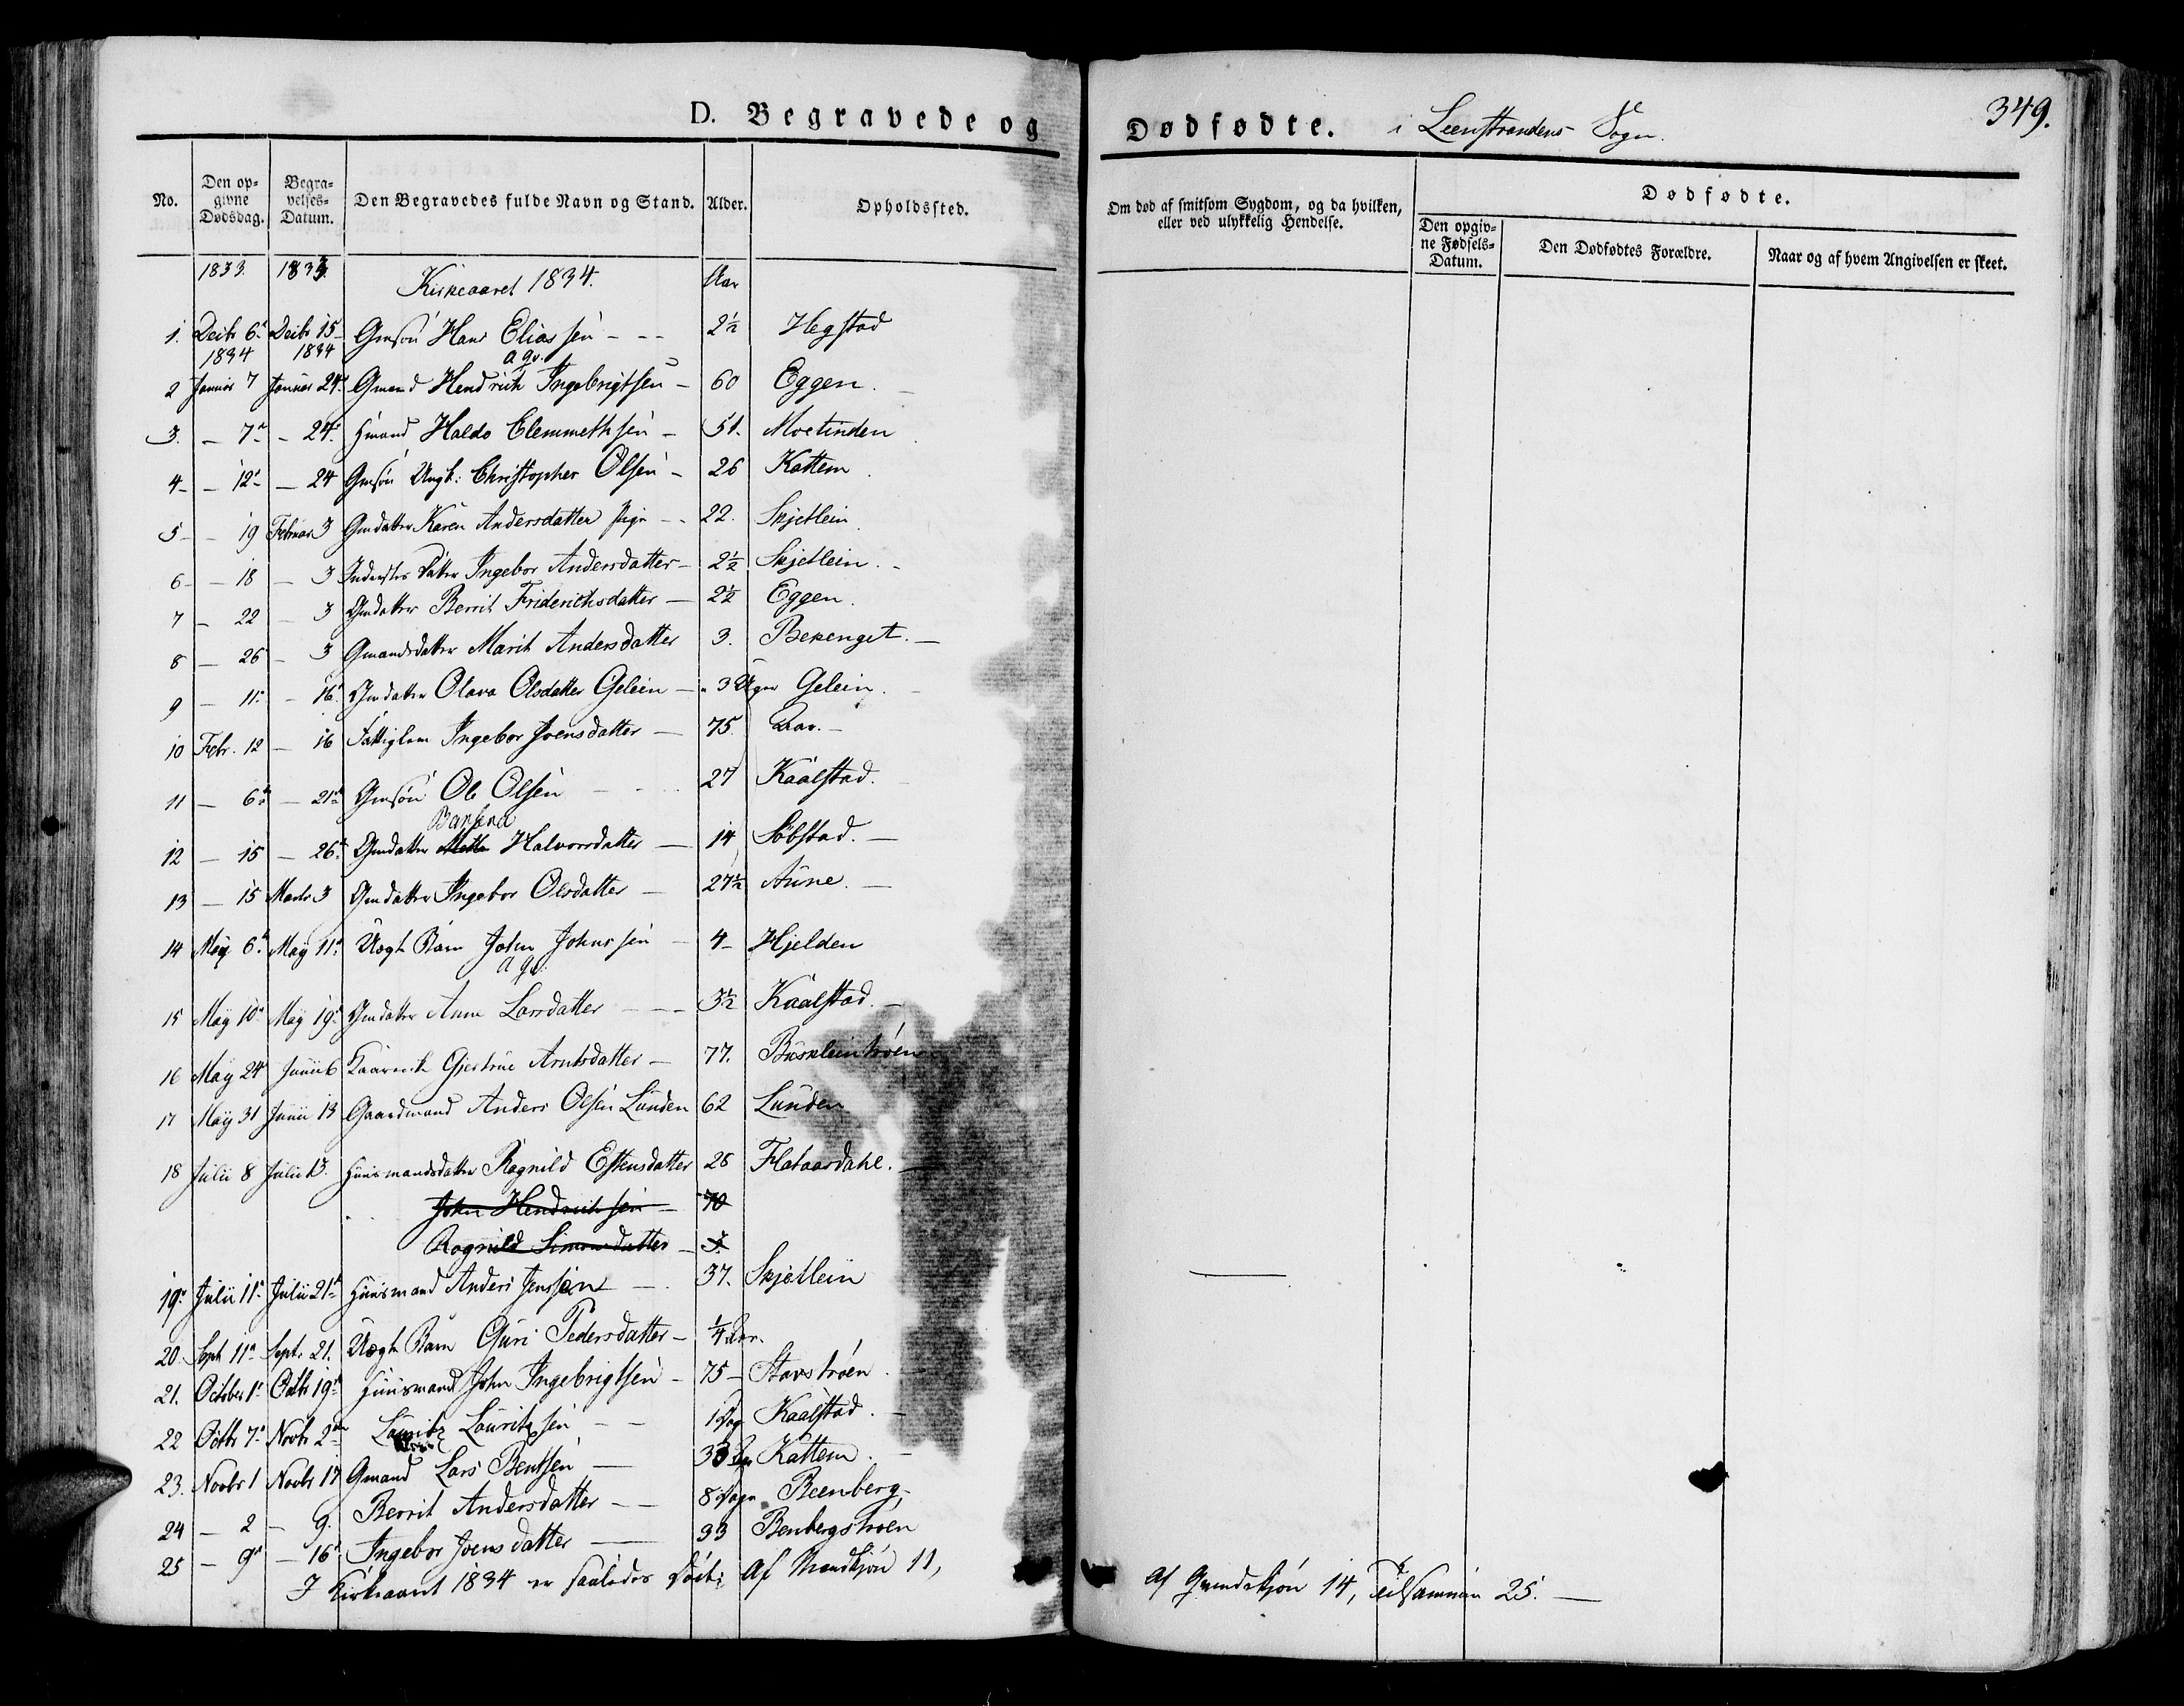 D. Begravede og Dødfødte. i Leenstrandens Sogn. 349.
No. Den opgivne Dødsdag. Begravelses-Datum. Den Begravedes fulde Navn og Stand. Alder. Opholdssted. Om død af smitsom Sygdom, og da hvilken, eller ved ulykkelig Hendelse. Dødfødte. Den opgivne Fødsels-Datum. Den Dødfødtes Forældre. Naar og af hvem Angivelsen er skeet.
1833. 1833. Kirkeaaret 1834. Aar
1. Decbr 6. Decbr 15 Gmsøn Hans Eliassen - - - 2½ Hegstad
1834 1834 a gv.
2 Januar 7 Januar 24. Gmand Hendrich Ingebrigtsen - 60 Eggen.
3. - 7 - 24. Hmand Haldo Clemmethsen - 51. Moetinden
4 - 12 - 24 Gmsøn Ungk: Christopher Olsen - 26 Kattem
5 - 19 Februar 3 Gmdatter Karen Andersdatter Pige - - 22. Skjetlein
6 - 18 - 3 Inderstes Datter Ingebor Andersdatter - 2½ Skjetlein. -
7 - 22 - 3 Gmdatter Berrit Friderichsdatter - 2½ Eggen.
8 - 26 - 3 Gmandsdatter Marit Andersdatter 3. Bekenget. -
9 - 11. - 16. Gmdatter Olava Olsdatter Gelein - 3 Uger Gelein.
10 Febr. 12 - 16 Fattiglem Ingebor Joensdatter - 75.
11 - 6 - 21 Gmsøn Ole Olsen 27 Kaalstad.
12 - 15 - 26. Gmdatter Halvorsdatter - 14 Søbstad. -
13 - 15 Marts 3 Gmdatter Ingebor Olsdatter - 27½ Aune. -
14 May 6. May 11. Uægt Barn John Johnssen - 4 - Hjelden
a gv.
15 May 10 May 19. Gmdatter Anne Larsdatter - - - 3½ Kaalstad. -
16 May 24 Junii 6 Gjertrue Arntsdatter - 77. Buskleintrøen
17 May 31 Junii 13 Gaardmand Anders Olsen Lunden 62 Lunden
18 Julii 8 Julii 13. Huusmandsdatter Ragnild Estensdatter 28 Flataasdahl. -
John Hendrichsen - 70
Ragnild Simonsdatter - 3.
19. Julii 11. Julii 21. Huusmand Anders Jenssen - 37. Skjetlein
20. Sept 11. Sept. 21. Uægt Barn Guri Pedersdatter - ¼ Aar.
21. October 1. Octbr 19. Huusmand John Ingebrigtsen - 75 - Stavstrøen.
22 Octbr 7. Novbr 2 Lauritz Lauritzsen - - 1 Dag Kaalstad. -
23. Novbr 1 Novbr 17 Gmand Lars Bentsen - Kattem. -
24 - 2 - 9. Berrit Andersdatter - - 8 Dage Beenberg,
25 - 9. - 16. Ingebor Joensdatter - 33 Benbergstrøen
I Kirkeaaret 1834 er saaledes Døde; Af Mandkjøn 11, Af Qvindekjøn 14, Tilsammen 25. -